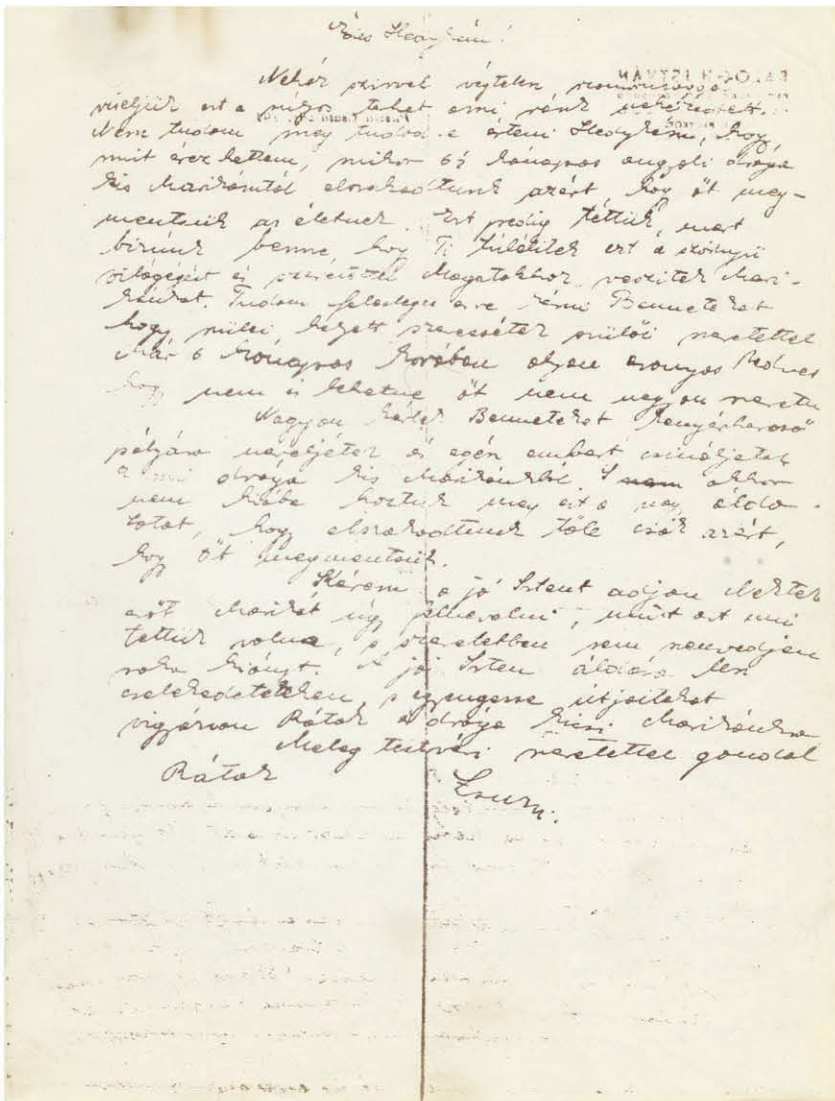 Édes Hedykém!
Nehéz szivvel végtelen szomorúsággal
viseljük ezt a súlyos terhet ami ránk nehezedett.
Nem tudom meg tudod-e érteni Hedykém, hogy
mit érezhettem, mikor 6½ hónapos angyali drága
kis Marikámtól elszakadtunk azért, hogy őt meg-
mentsük az életnek. Ezt pedig tettük, mert
bizunk benne, hogy Ti túlélitek ezt a szörnyű
világégést és szeretettel Magatokhoz veszitek Mari-
kánkat. Tudom felesleges arra kérni Benneteket
hogy szülei helyett szeressétek szülői szeretettel
Már 6 hónapos korában olyan aranyos kedves
hogy nem is lehetne őt nem nagyon szeretni
Nagyon kérlek Benneteket kenyérkereső
pályára neveljétek és egész embert csináljatok
a mi drága kis Marikánkból. S akkor
nem hiába hoztuk meg ezt a nagy áldo-
zatot, hogy elszakadtunk tőle csak azért,
hogy Őt megmentsük.
Kérem a jó Istent adjon Nektek
erőt Marikát úgy felnevelni, mint azt mi
tettük volna, s szeretetben sem szenvedjen
soha hiányt. A jó Isten áldása len
cselekedeteteken, s egyengesse útjaitokat
vigyázzon Rátok s drága kicsi Marikánkra
Meleg testvéri szeretettel gondol
Rátok
Zsuzsi.
BALOGH ISTVÁN